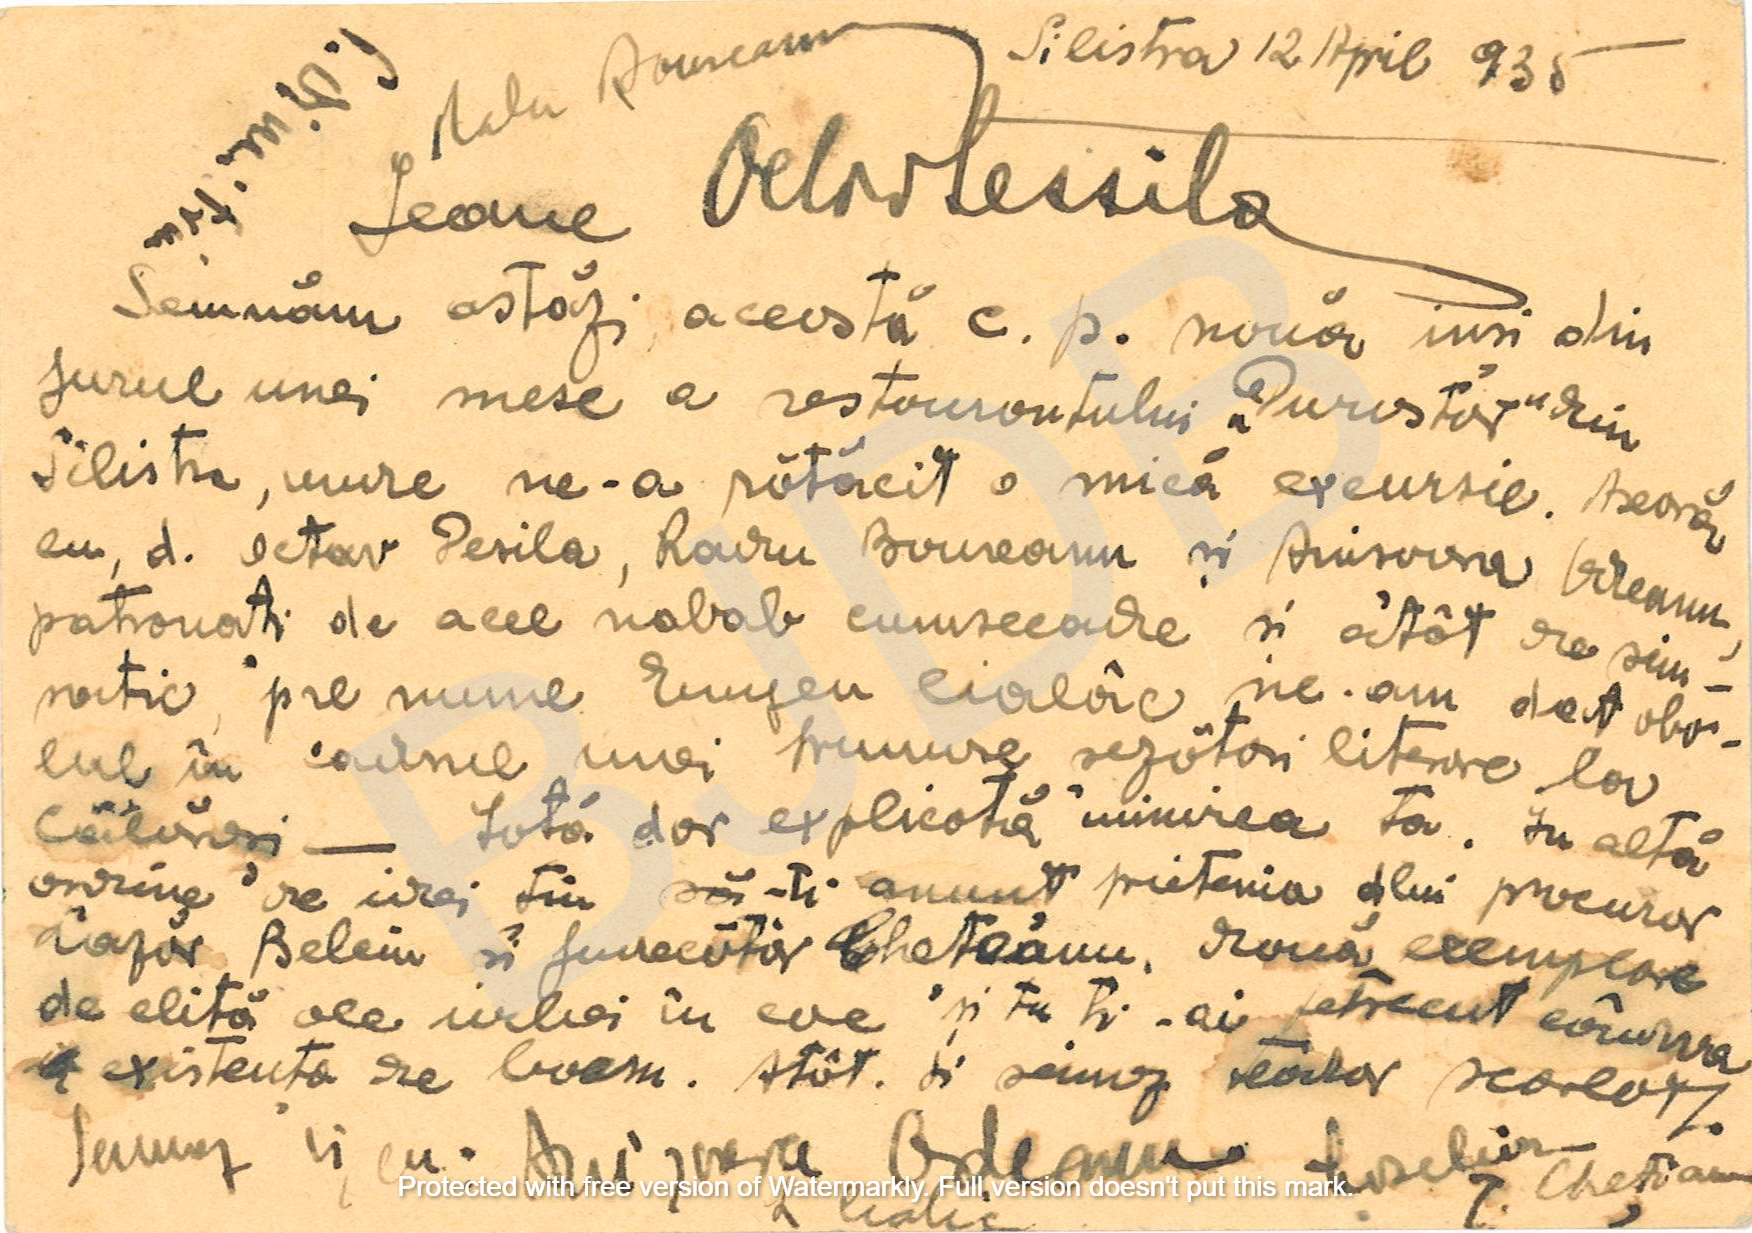 Silistra 12 April 935
Radu Boureanu
I. Dimitriu
Octav Dessila
Leane
Semnăm astăzi, această c. p. nouă inși din
jurul unei mese a restaurantului „Durostor” din
Silistra, unde ne-a rătăcit o mică excursie. Aseară
eu, d. Octav Desila, Radu Boureanu și Anișoara Odeanu,
patronați de acel nabab cumsecade și atât de sim-
patic, pre nume Eugen Cialâc, ne-am dat obo-
lul în cadrul unei frumoase șezători literare la
Călărași — Iată dar explicată uimirea ta. În altă
ordine de idei țin să-ți anunț prietenia dlui procuror
Lazăr Belcin și judecător Chețeanu, două exemplare
de elită ale urbei în care și tu ți-ai petrecut cândva
existența de boem. Atât. Și semnez Teodor Scarlat.
Semnez și eu. Anișoara Odeanu
Cialic
Chețianu
BJDB
Protected with free version of Watermarkly. Full version doesn't put this mark.